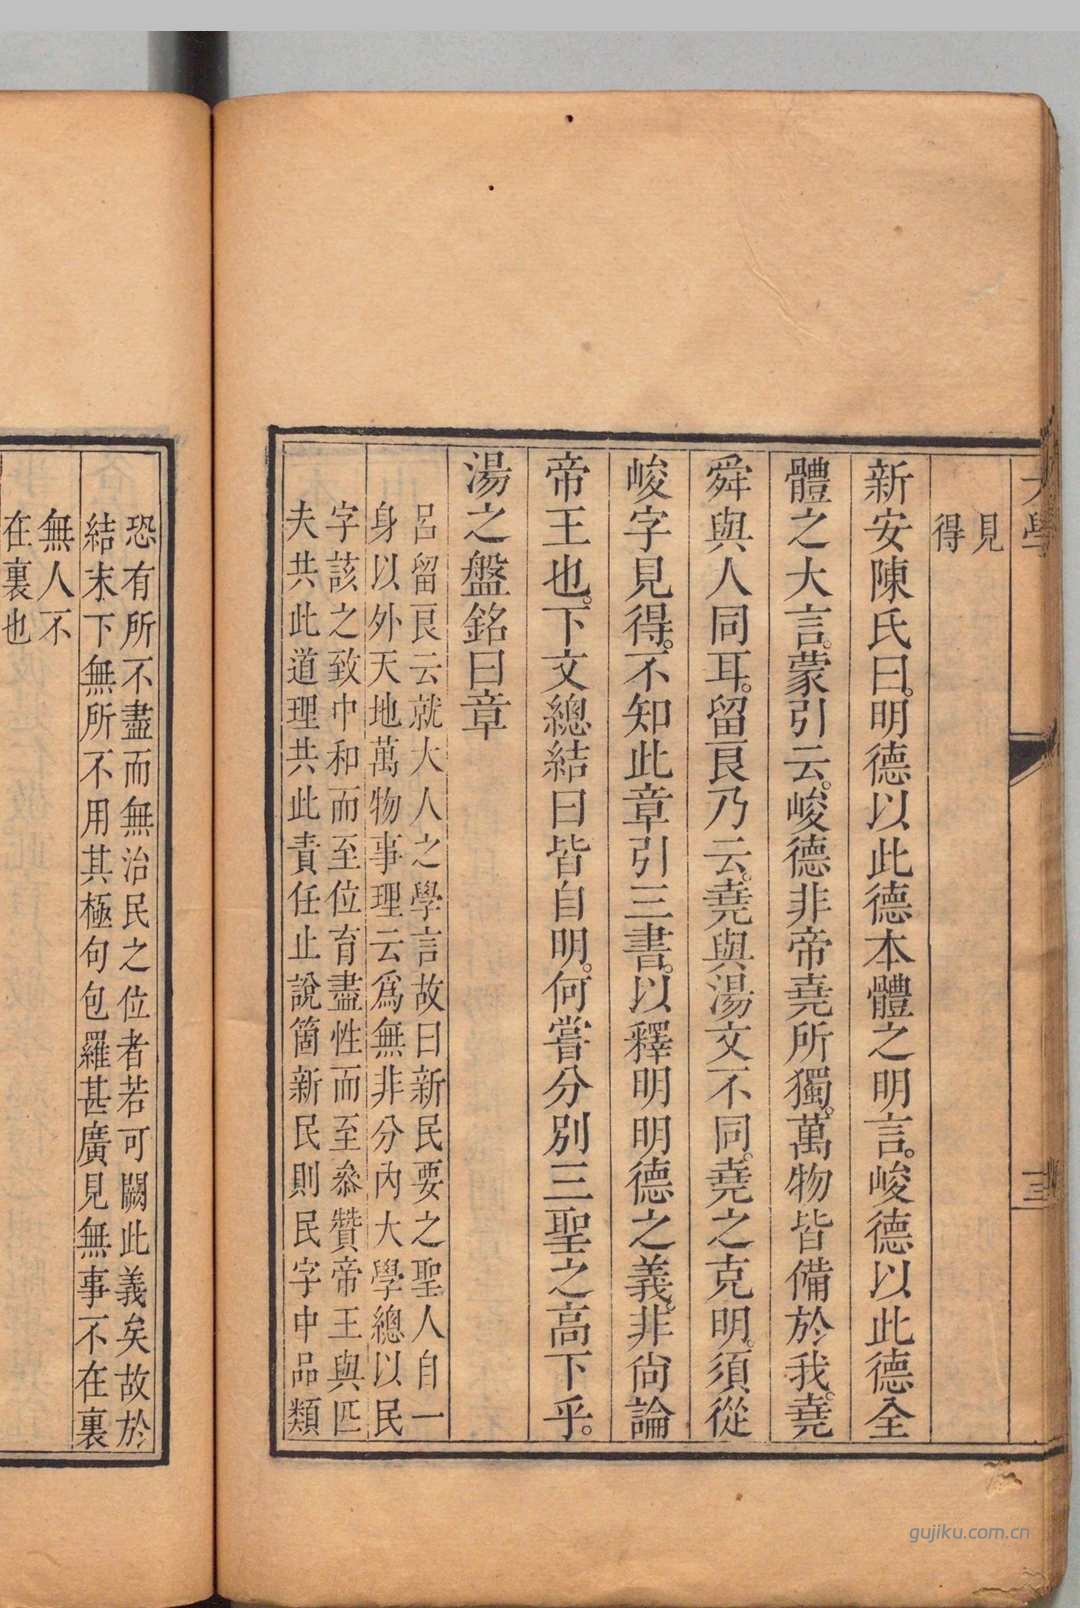 大學
三
見
得
新安陳氏曰。明德以此德本體之明言。峻德以此德全
體之大言。蒙引云。峻德非帝堯所獨。萬物皆備於我。堯
舜與人同耳。留良乃云。堯與湯文不同。堯之克明。須從
峻字見得。不知此章引三書。以釋明明德之義。非尚論
帝王也。下文總結曰皆自明。何嘗分別三聖之高下乎。
湯之盤銘曰章
呂留良云就大人之學言故曰新民要之聖人自一
身以外天地萬物事理云爲無非分內大學總以民
字該之致中和而至位育盡性而至參贊帝王與匹
夫共此道理共此責任止說箇新民則民字中品類
恐有所不盡而無治民之位者若可闕此義矣故於
結末下無所不用其極句包羅甚廣見無事不在裏
無人不
在裏也
gujiku.com.cn